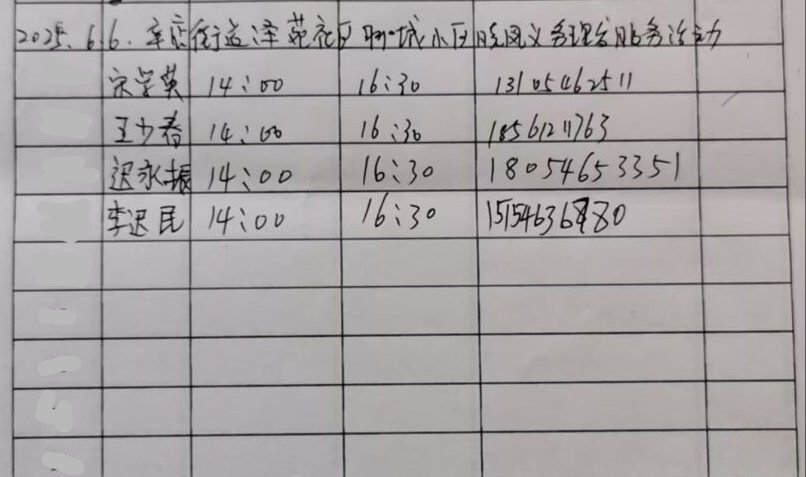 2025.6.6.辛店街道泽苑社区明城小区晓风义务理发服务活动
宋学英 14:00 16:30 13105462511
王少春 14:00 16:30 18561211763
迟永振 14:00 16:30 18054653351
李迟民 14:00 16:30